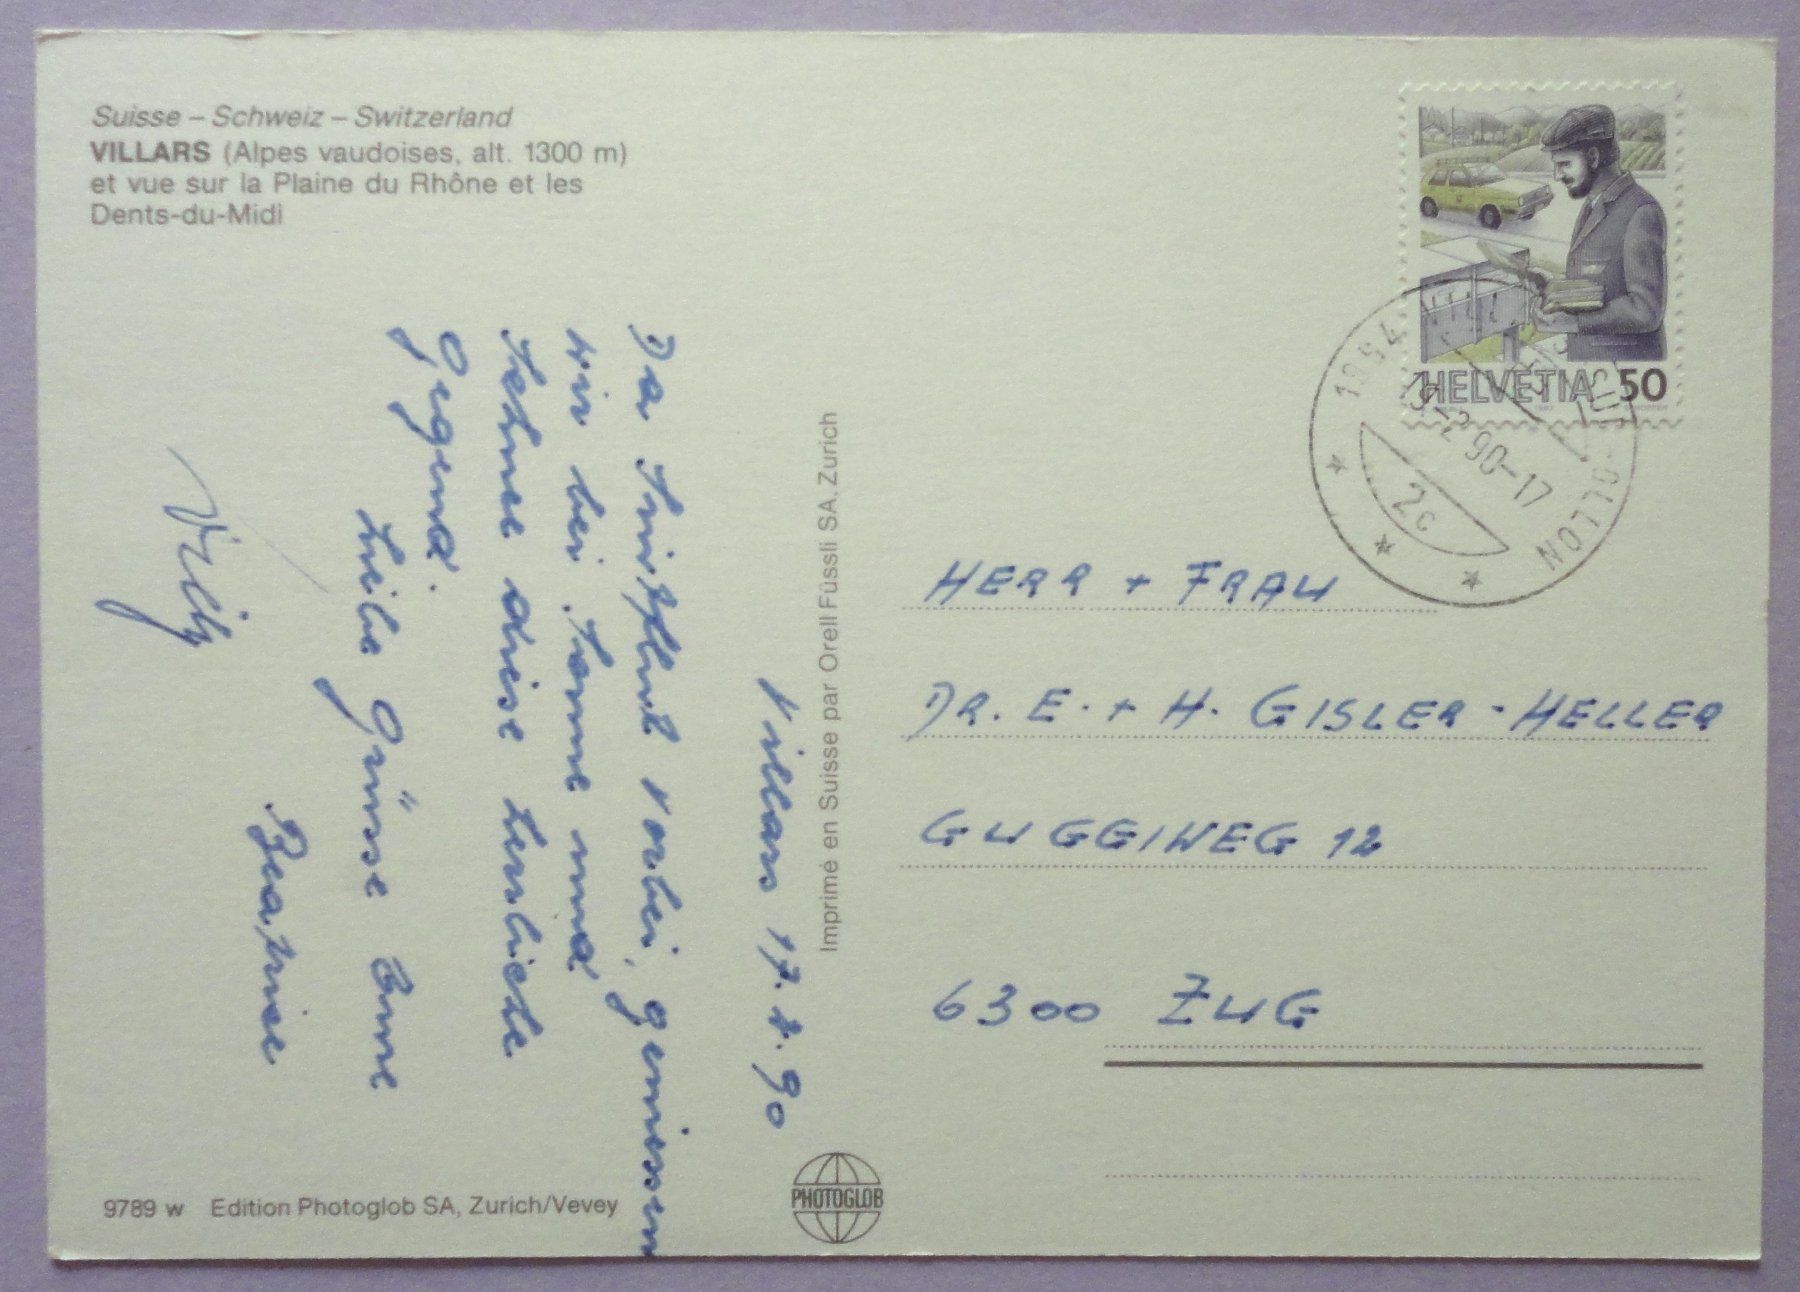 Suisse – Schweiz – Switzerland
VILLARS (Alpes vaudoises, alt. 1300 m)
et vue sur la Plaine du Rhône et les
Dents-du-Midi
Villars 17.2.90
Da vorbei, geniessen
wir bei Sonne und
Schnee diese herrliche
Gegend.
Liebe Grüsse Eure
Beatrice
Willy
Imprimé en Suisse par Orell Füssli SA, Zurich
HELVETIA 50
1884
2 90-17
2c
OLLON
HERR + FRAU
DR. E. + H. GISLER-HELLER
GUGGIWEG 12
6300 ZUG
9789 w Edition Photoglob SA, Zurich/Vevey
PHOTOGLOB